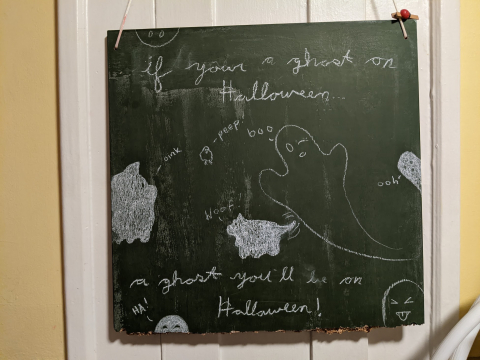 if your a ghost on
Halloween...
peep
boo
oink
ooh
Woof
a ghost you'll be on
Halloween!
HA!